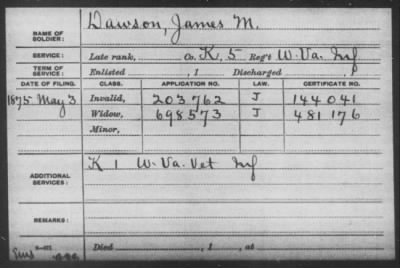 NAME OF SOLDIER: Dawson, James M.
SERVICE: Late rank, Co. K, 5 Reg't W. Va. Inf
TERM OF SERVICE: Enlisted , 1 Discharged , 1
DATE OF FILING. CLASS. APPLICATION NO. LAW. CERTIFICATE NO.
1875 May 3 Invalid, 203762 J 144041
Widow, 698573 J 481176
Minor,
ADDITIONAL SERVICES: K 1 W. Va. Vet Inf
REMARKS:
Died , 1 , at